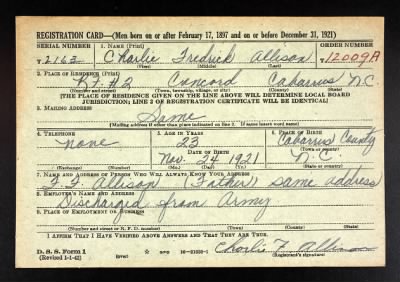 REGISTRATION CARD—(Men born on or after February 17, 1897 and on or before December 31, 1921)
SERIAL NUMBER 1. NAME (Print) ORDER NUMBER
T 2163 Charlie Fredrick Allison 12009A
(First) (Middle) (Last)
2. PLACE OF RESIDENCE (Print)
R.F.#2 Concord Cabarrus N.C
(Number and street) (Town, township, village, or city) (County) (State)
[THE PLACE OF RESIDENCE GIVEN ON THE LINE ABOVE WILL DETERMINE LOCAL BOARD
JURISDICTION; LINE 2 OF REGISTRATION CERTIFICATE WILL BE IDENTICAL]
3. MAILING ADDRESS
Same
[Mailing address if other than place indicated on line 2. If same insert word same]
4. TELEPHONE 5. AGE IN YEARS 6. PLACE OF BIRTH
none 23 Cabarrus County
DATE OF BIRTH (Town or county)
Nov. 24 1921 N.C.
(Exchange) (Number) (Mo.) (Day) (Yr.) (State or country)
7. NAME AND ADDRESS OF PERSON WHO WILL ALWAYS KNOW YOUR ADDRESS
Allison (Father) same address
8. EMPLOYER'S NAME AND ADDRESS
Discharged from Army
9. PLACE OF EMPLOYMENT OR BUSINESS
(Number and street or R. F. D. number) (Town) (County) (State)
I AFFIRM THAT I HAVE VERIFIED ABOVE ANSWERS AND THAT THEY ARE TRUE.
D. S. S. Form 1
(Revised 1-1-42) (over) GPO 16—21630-1 Charlie F. Allison
(Registrant's signature)